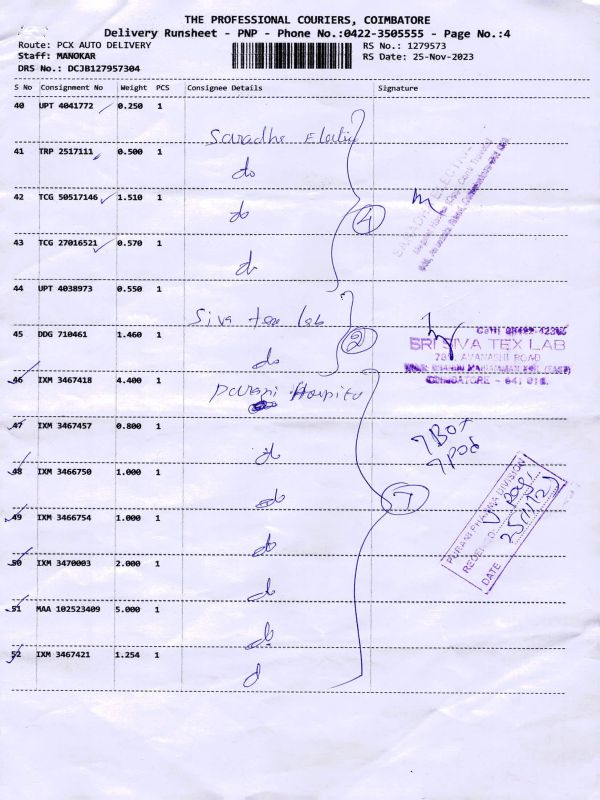 THE PROFESSIONAL COURIERS, COIMBATORE
Delivery Runsheet - PNP - Phone No.:0422-3505555 - Page No.:4
Route: PCX AUTO DELIVERY RS No.: 1279573
Staff: MANOKAR RS Date: 25-Nov-2023
DRS No.: DCJB127957304
S No Consignment No Weight PCS Consignee Details Signature
40 UPT 4041772 0.250 1
Saradha
41 TRP 2517111 0.500 1
do
42 TCG 50517146 1.510 1
do
4
43 TCG 27016521 0.570 1
do
44 UPT 4038973 0.550 1
Siva tex lab
2
45 DDG 710461 1.460 1
do
SRI SIVA TEX LAB
AVANASHI ROAD
COIMBATORE - 641 018.
46 IXM 3467418 4.400 1
Hospital
47 IXM 3467457 0.800 1
do
7 Box
7 Pod
48 IXM 3466750 1.000 1
do
7
49 IXM 3466754 1.000 1
do
PURANI PHARMA DIVISION
RECEIVED
DATE 25/11/23
50 IXM 3470003 2.000 1
do
51 MAA 102523409 5.000 1
do
52 IXM 3467421 1.254 1
d